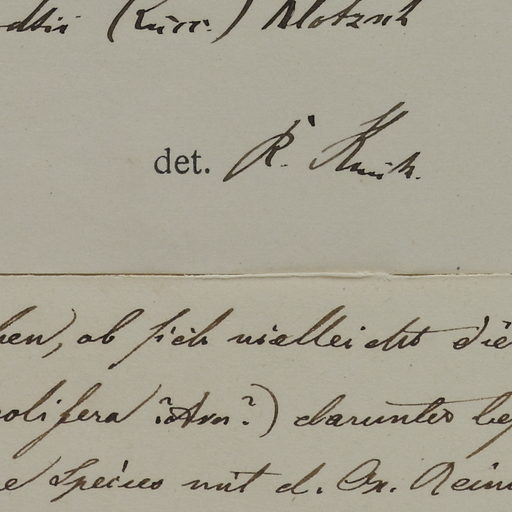 (Knir.) Klotzsch
det. R. Knuth.
ben, ob sich vielleicht die
olifera Arn?) darunter be
e Species mit d. Ox. Rein